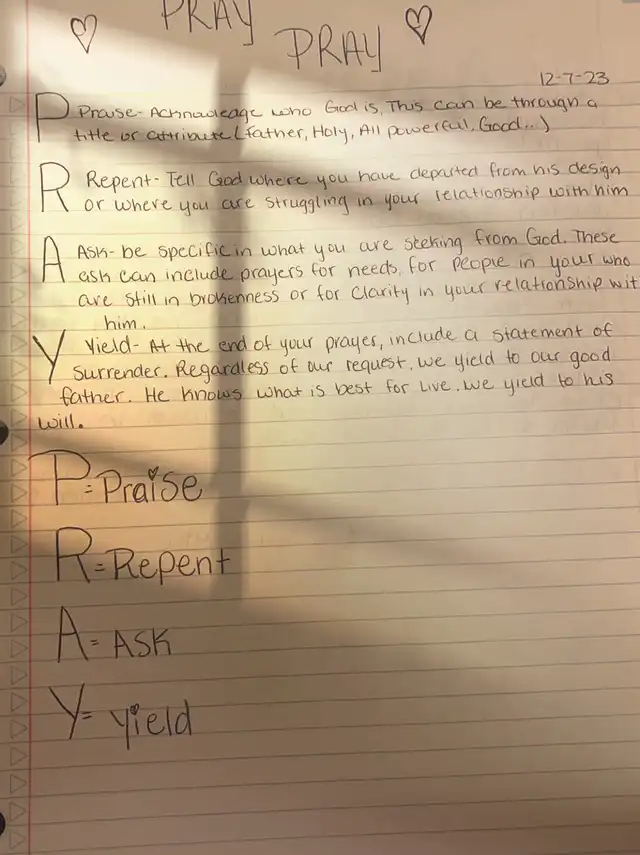 PRAY
PRAY
12-7-23
P Praise- Acknowleage who God is, This can be through a
title or attribute (father, Holy, All powerful, Good...)
R Repent- Tell God where you have departed from his design
or where you are struggling in your relationship with him
A Ask- be specific in what you are seeking from God. These
ask can include prayers for needs, for people in your who
are still in brokenness or for clarity in your relationship wit
him.
Y Yield- At the end of your prayer, include a statement of
Surrender. Regardless of our request, we yield to our good
father. He knows what is best for live. we yield to his
will.
P=Praise
R=Repent
A= ASK
Y= Yield